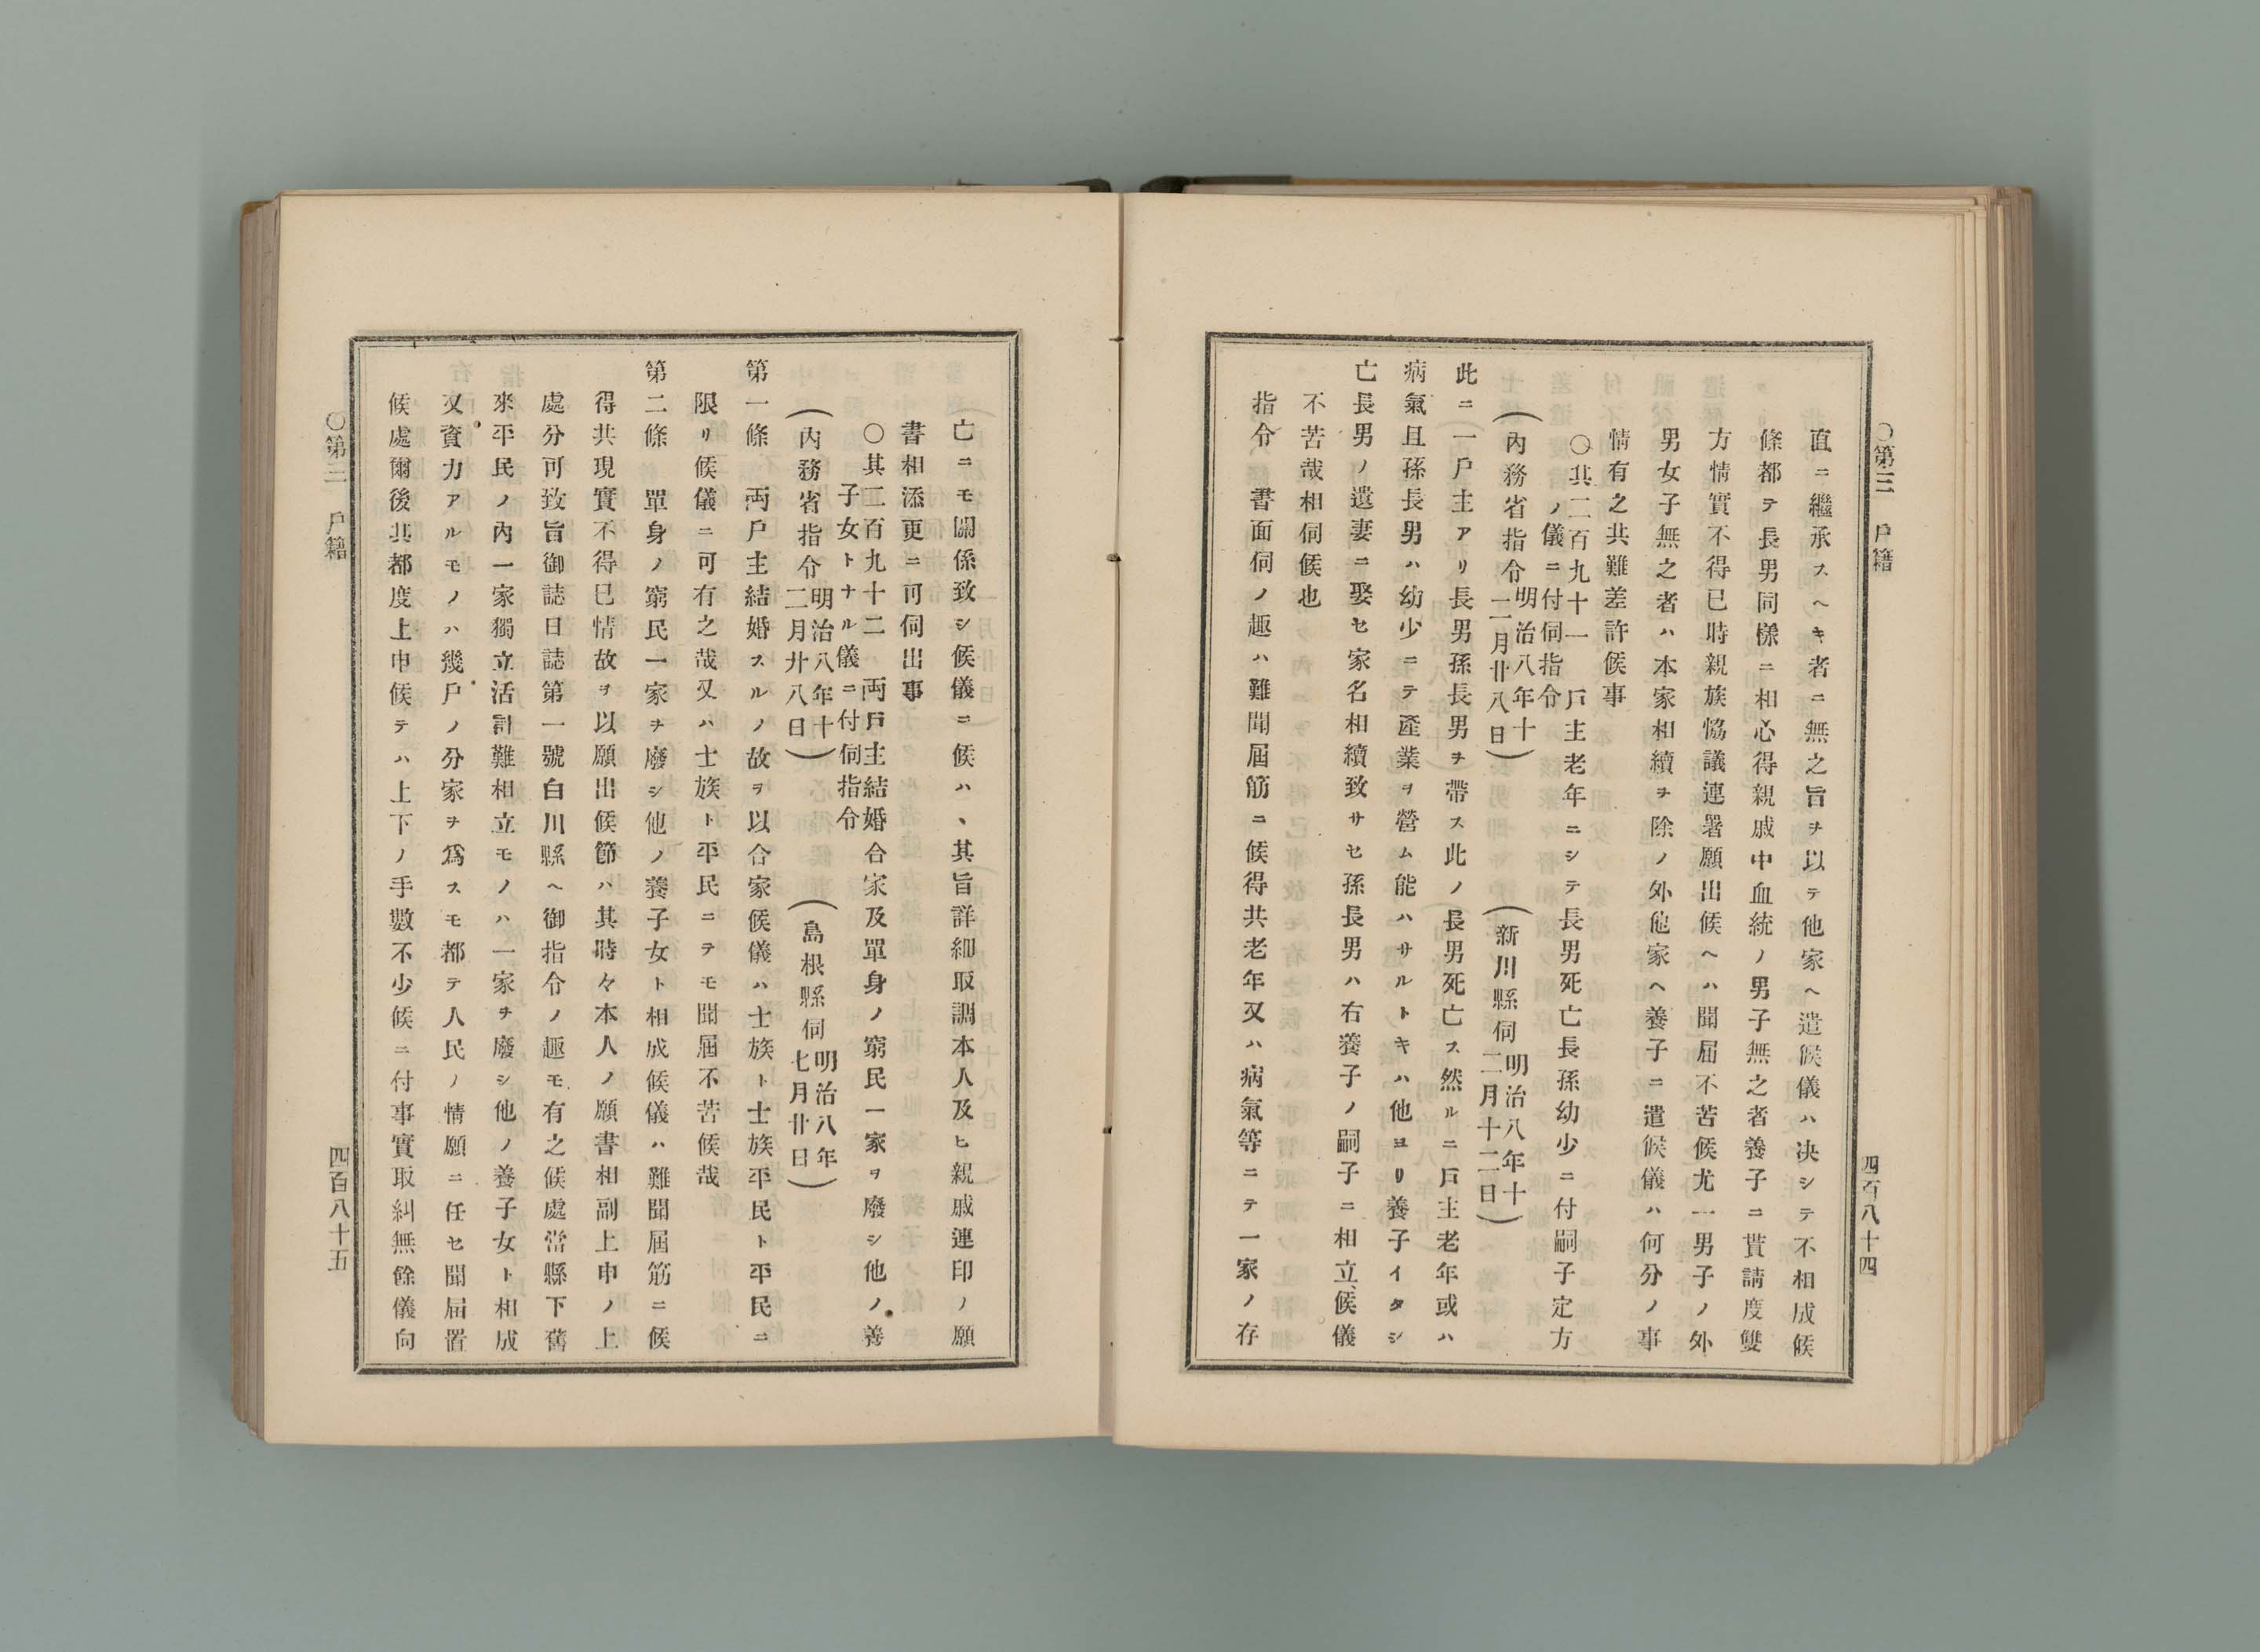 〇第三　戶籍
四百八十四
直ニ繼承スヘキ者ニ無之旨ヲ以テ他家ヘ遣候儀ハ決シテ不相成候
條都テ長男同樣ニ相心得親戚中血統ノ男子無之者養子ニ貰請度雙
方情實不得已時親族恊議連署願出候ヘハ聞屆不苦候尤一男子ノ外
男女子無之者ハ本家相續ヲ除ノ外他家ヘ養子ニ遣候儀ハ何分ノ事
情有之共難差許候事
〇其二百九十一　戶主老年ニシテ長男死亡長孫幼少ニ付嗣子定方
ノ儀ニ付伺指令
(內務省指令明治八年十二月廿八日)　(新川縣伺明治八年十二月十二日)
此ニ一戶主アリ長男孫長男ヲ帶ス此ノ長男死亡ス然ルニ戶主老年或ハ
病氣且孫長男ハ幼少ニテ產業ヲ營ム能ハサルトキハ他ヨリ養子イタシ
亡長男ノ遺妻ニ娶セ家名相續致サセ孫長男ハ右養子ノ嗣子ニ相立候儀
不苦哉相伺候也
指令　書面伺ノ趣ハ難聞屆筋ニ候得共老年又ハ病氣等ニテ一家ノ存
亡ニモ關係致シ候儀ニ候ハヽ其旨詳細取調本人及ヒ親戚連印ノ願
書相添更ニ可伺出事
〇其二百九十二　両戶主結婚合家及單身ノ窮民一家ヲ廢シ他ノ養
子女トナル儀ニ付伺指令
(內務省指令明治八年十二月廿八日)　(島根縣伺明治八年七月廿日)
第一條　両戶主結婚スルノ故ヲ以合家候儀ハ士族ト士族平民ト平民ニ
限リ候儀ニ可有之哉又ハ士族ト平民ニテモ聞屆不苦候哉
第二條　單身ノ窮民一家ヲ廢シ他ノ養子女ト相成候儀ハ難聞屆筋ニ候
得共現實不得已情故ヲ以願出候節ハ其時々本人ノ願書相副上申ノ上
處分可致旨御誌日誌第一號白川縣ヘ御指令ノ趣モ有之候處當縣下舊
來平民ノ內一家獨立活計難相立モノハ一家ヲ廢シ他ノ養子女ト相成
又資力アルモノハ幾戶ノ分家ヲ爲スモ都テ人民ノ情願ニ任セ聞屆置
候處爾後其都度上申候テハ上下ノ手數不少候ニ付事實取糾無餘儀向
〇第三　戶籍
四百八十五